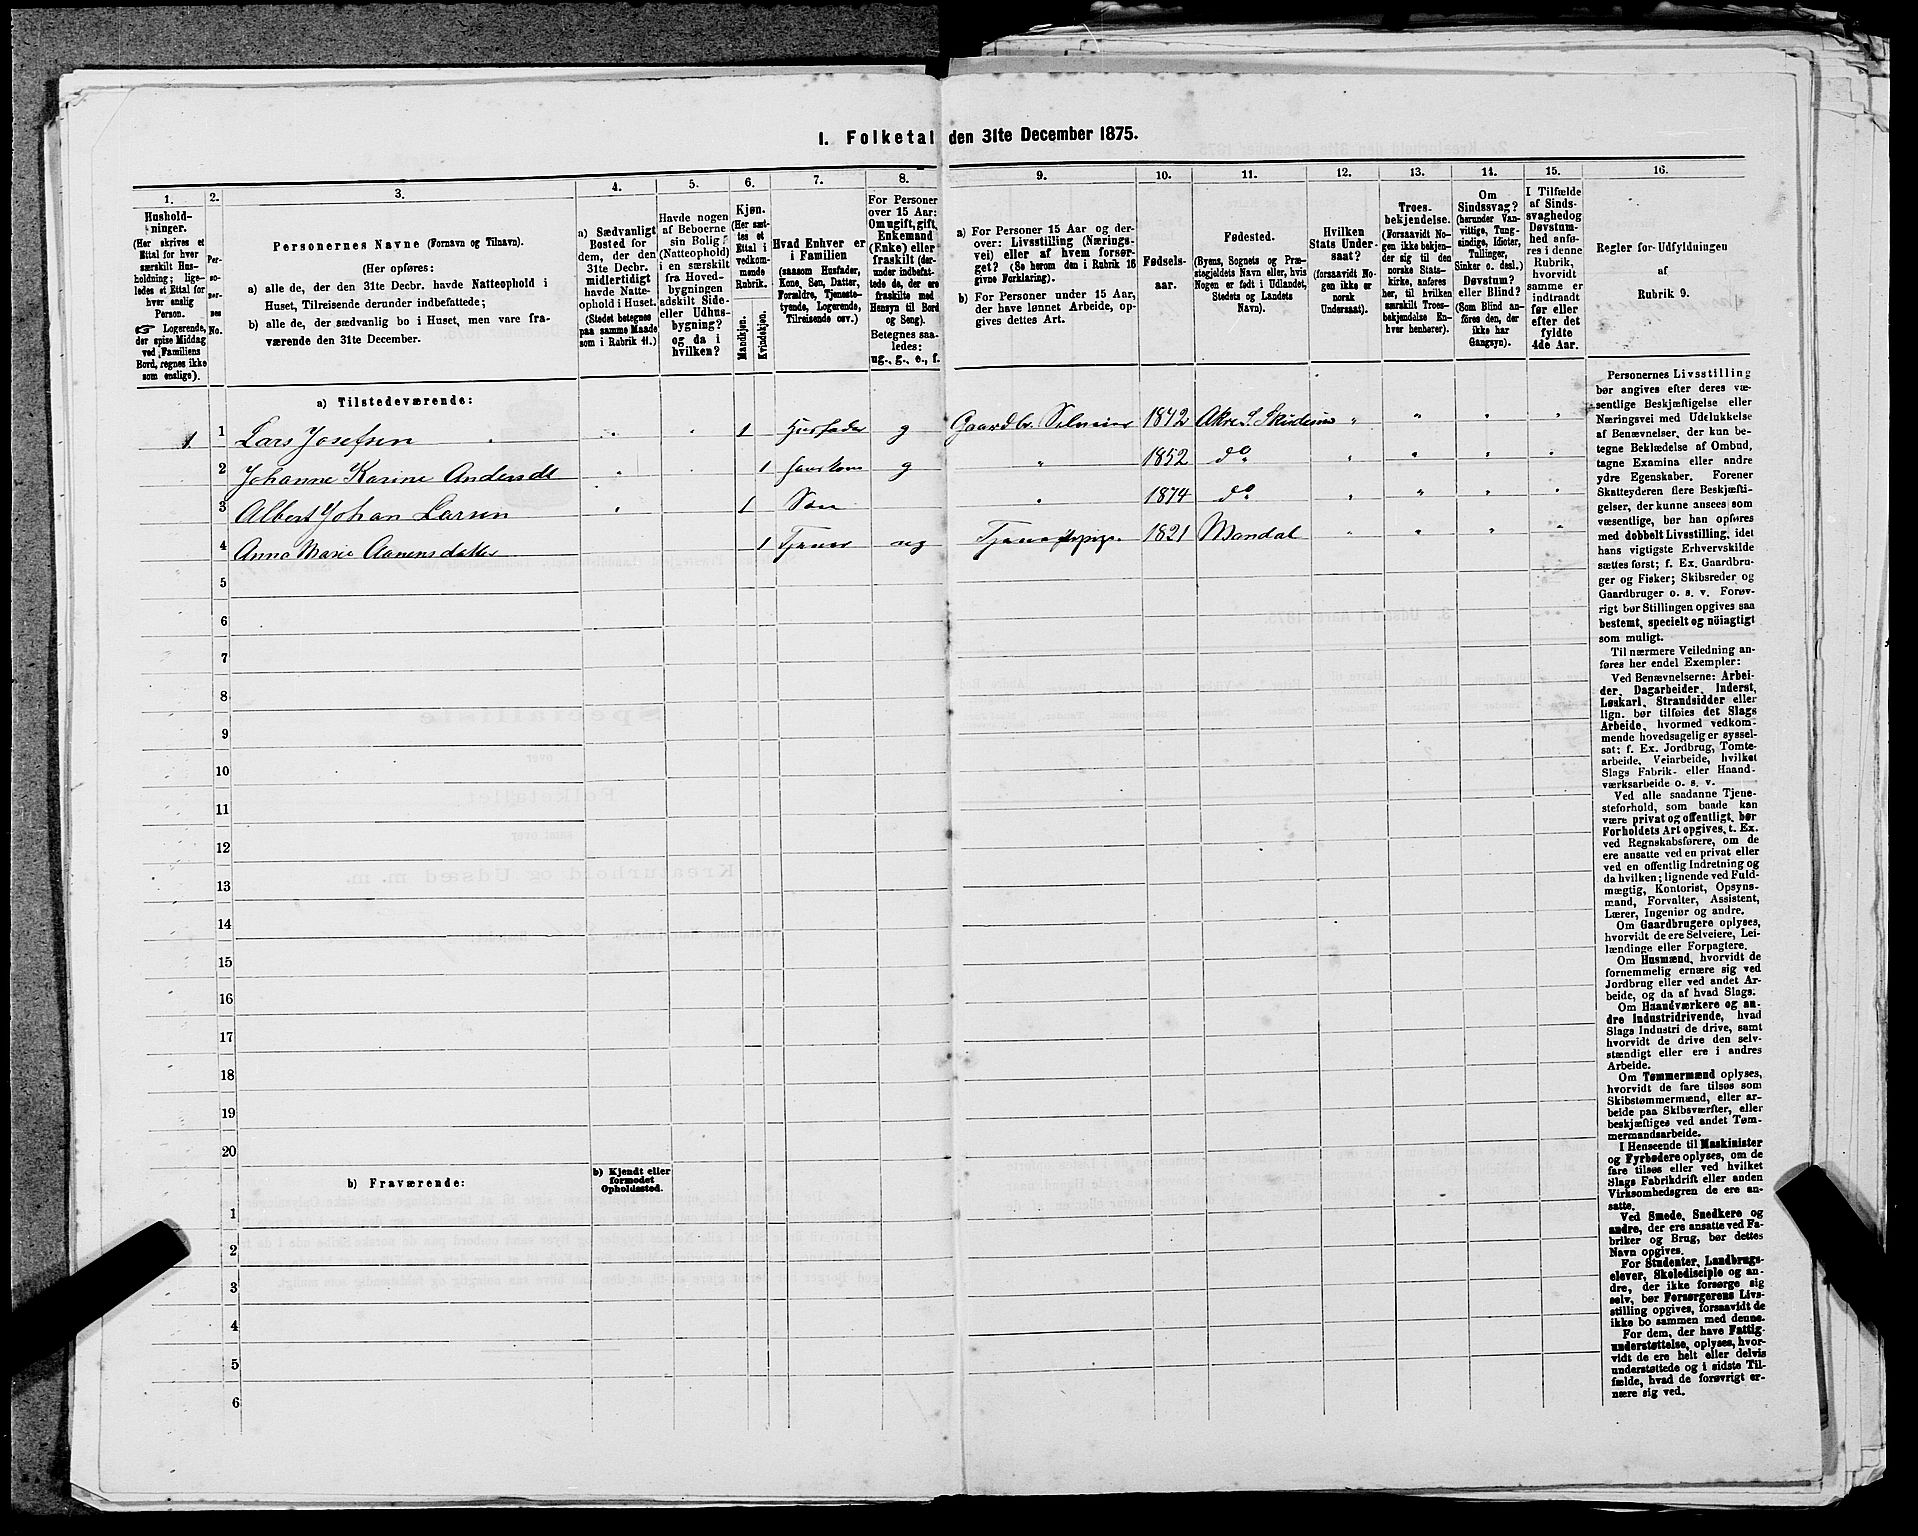 1. Folketal den 31te December 1875.
1. 2. 3. 4. 5. 6. 7. 8. 9. 10. 11. 12. 13. 14. 15. 16.
Hushold-
ninger.
(Her skrives et
Ettal for hver
særskilt Hus-
holdning; lige-
ledes et Ettal for
hver enslig
Person.
☞ Logerende,
der spise Middag
ved Familiens
Bord, regnes ikke
som enslige).
Per-
so-
ner-
nes
No.
Personernes Navne (Fornavn og Tilnavn).
(Her opføres:
a) alle de, der den 31te Decbr. havde Natteophold i
Huset, Tilreisende derunder indbefattede;
b) alle de, der sædvanlig bo i Huset, men vare fra-
værende den 31te December.
a) Sædvanligt
Bosted for
dem, der den
31te Decbr.
midlertidigt
havde Natte-
ophold i Huset.
(Stedet betegnes
paa samme Maade
som i Rubrik 11.)
Havde nogen
af Beboerne
sin Bolig
(Natteophold)
i en særskilt
fra Hoved-
bygningen
adskilt Side-
eller Udhus-
bygning?
og da i
hvilken?
Kjøn.
(Her sæt-
tes et
Ettal i
vedkom-
mende
Rubrik.
Mandkjøn.
Kvindekjøn.
Hvad Enhver er
i Familien
(saasom Husfader,
Kone, Søn, Datter,
Forældre, Tjeneste-
tyende, Logerende,
Tilreisende osv.)
For Personer
over 15 Aar:
Om ugift, gift,
Enkemand
(Enke) eller
fraskilt (der-
under indbefat-
tede de, der ere
fraskilte med
Hensyn til Bord
og Seng).
Betegnes saa-
ledes:
ug., g., e., f.
a) For Personer 15 Aar og der-
over: Livsstilling (Nærings-
vei) eller af hvem forsør-
get? (Se herom den i Rubrik 16
givne Forklaring).
b) For Personer under 15 Aar,
der have lønnet Arbeide, op-
gives dettes Art.
Fødsels-
aar.
Fødested.
(Byens, Sognets og Præ-
stegjeldets Navn eller, hvis
Nogen er født i Udlandet,
Stedets og Landets
Navn).
Hvilken
Stats Under-
saat?
(forsaavidt No-
gen ikke er
norsk
Undersaat).
Troes-
bekjendelse.
(Forsaavidt No-
gen ikke bekjen-
der sig til den
norske Stats-
kirke, anføres
her, til hvilken
særskilt Troes-
bekjendelse En-
hver henhører).
Om
Sindssvag?
(herunder Van-
vittige, Tung-
sindige, Idioter,
Tullinger,
Sinker o. desl.)
Døvstum?
eller Blind?
(Som Blind an-
føres den, der
ikke har
Gangsyn).
I Tilfælde
af Sinds-
svaghed og
Døvstum-
hed anfø-
res i denne
Rubrik,
hvorvidt
samme er
indtraadt
før eller
efter det
fyldte
4de Aar.
Regler for Udfyldningen
af
Rubrik 9.
a) Tilstedeværende:
1 1 Lars Josefsen 1 Husfader g Gaardbr. Selveier 1842 Akre S. Skudesnes
2 Johanne Karine Andersdt 1 g 1852 do
3 Albert Johan Larsen 1 Søn 1874 do
4 Anna Marie 1 Tjener ug 1821 Mandal
5
6
7
8
9
10
11
12
13
14
15
16
17
18
19
20
b) Fraværende:
b) Kjendt eller
formodet
Opholdssted.
1
2
3
4
5
6
Personernes Livsstilling
bør angives efter deres væ-
sentlige Beskjæftigelse eller
Næringsvei med Udelukkelse
af Benævnelser, der kun be-
tegne Beklædelse af Ombud,
tagne Examina eller andre
ydre Egenskaber. Forener
Skatteyderen flere Beskjæfti-
gelser, der kunne ansees som
væsentlige, bør han opføres
med dobbelt Livsstilling, idet
hans vigtigste Erhvervskilde
sættes først; f. Ex. Gaardbru-
ger og Fisker; Skibsreder og
Gaardbruger o. s. v. Forøv-
rigt bør Stillingen opgives saa
bestemt, specielt og nöiagtigt
som muligt.
Til nærmere Veiledning an-
føres her endel Exempler:
Ved Benævnelserne: Arbei-
der, Dagarbeider, Inderst,
Løskarl, Strandsidder eller
lign. bør tilføies det Slags
Arbeide, hvormed vedkom-
mende hovedsagelig er syssel-
sat; f. Ex. Jordbrug, Tomte-
arbeide, Veiarbeide, hvilket
Slags Fabrik- eller Haand-
værksarbeide o. s. v.
Ved alle saadanne Tjene-
steforhold, som baade kan
være privat og offentligt, bør
Forholdets Art opgives, t. Ex.
ved Regnskabsførere, om de
ere ansatte ved en privat eller
ved en offentlig Indretning og
da hvilken; lignende ved Fuld-
mægtig, Kontorist, Opsyns-
mand, Forvalter, Assistent,
Lærer, Ingeniør og andre.
Om Gaardbrugere oplyses,
hvorvidt de ere Selveiere, Lei-
lændinge eller Forpagtere.
Om Husmænd, hvorvidt de
fornemmelig ernære sig ved
Jordbrug eller ved andet Ar-
beide, og da af hvad Slags.
Om Haandværkere og an-
dre Industridrivende, hvad
Slags Industri de drive, samt
hvorvidt de drive den selv-
stændigt eller ere i andres
Arbeide.
Om Tømmermænd oplyses,
hvorvidt de fare tilsøs som
Skibstømmermænd, eller ar-
beide paa Skibsværfter, eller
beskjæftiges ved andet Tøm-
mermandsarbeide.
I Henseende til Maskinister
og Fyrbødere oplyses, om de
fare tilsøs eller ved hvilket
Slags Fabrikdrift eller anden
Virksomhedsgren de ere an-
satte.
Ved Smede, Snedkere og
andre, der ere ansatte ved Fa-
briker og Brug, bør dettes
Navn opgives.
For Studenter, Landbrugs-
elever, Skoledisciple og an-
dre, der ikke forsørge sig
selv, bør Forsørgerens Livs-
stilling opgives, forsaavidt de
ikke bo sammen med denne.
For dem, der have Fattig-
understøttelse, oplyses, hvor-
vidt de ere helt eller delvis
understøttede og i sidste Til-
fælde, hvad de forøvrigt er-
nære sig ved.